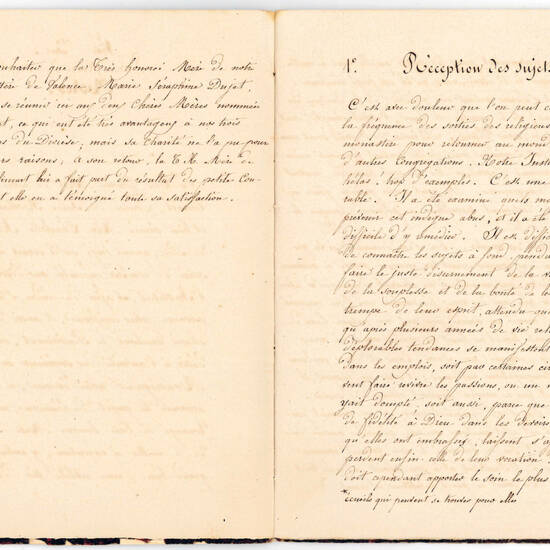 ouhaiter que la Très honorée Mère de notre
de Valence Marie Séraphine Dujet,
se réunir en aux deux Chères Mères nommées
t, ce qui eut été très avantageux à nos trois
du Diocèse, mais sa Charité ne l'a pu pour
rs raisons; à son retour, la T. H. Mère de
lui a fait part du résultat des petits Con
t elle en a témoigné toute sa satisfaction.
1º. Réception des sujets
C'est avec douleur que l'on peut c
la fréquence des sorties des religieus
monastère pour retourner au mon
d'autres Congrégations. Notre Insti
hélas! trop d'exemples. C'est une
rable. Il a été examiné quels mo
prévenir cet indigne abus, et il a été
difficile d'y remédier. Il est diffic
de connaître les sujets à fond, penda
faire le juste discernement de la v
de la souplesse et de la bonté de le
trempe de leur esprit, attendu que
qu'après plusieurs années de vie rel
déplorables tendances se manifestent
dans les emplois, soit par certaines cir
vent faire revivre les passions, ou un
yait dompté, soit aussi, parce que
de fidélité à Dieu dans les devoirs
qu'elles ont embrassé, laissent s'a
perdent enfin celle de leur vocation
doit cependant apporter le soin le plus
*écueils qui peuvent se trouver pour elles